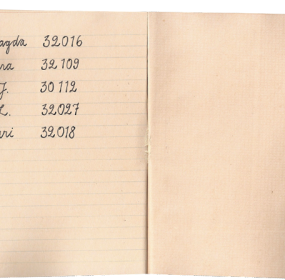 agda 32016
ra 32109
J. 30112
L. 32027
ri 32018